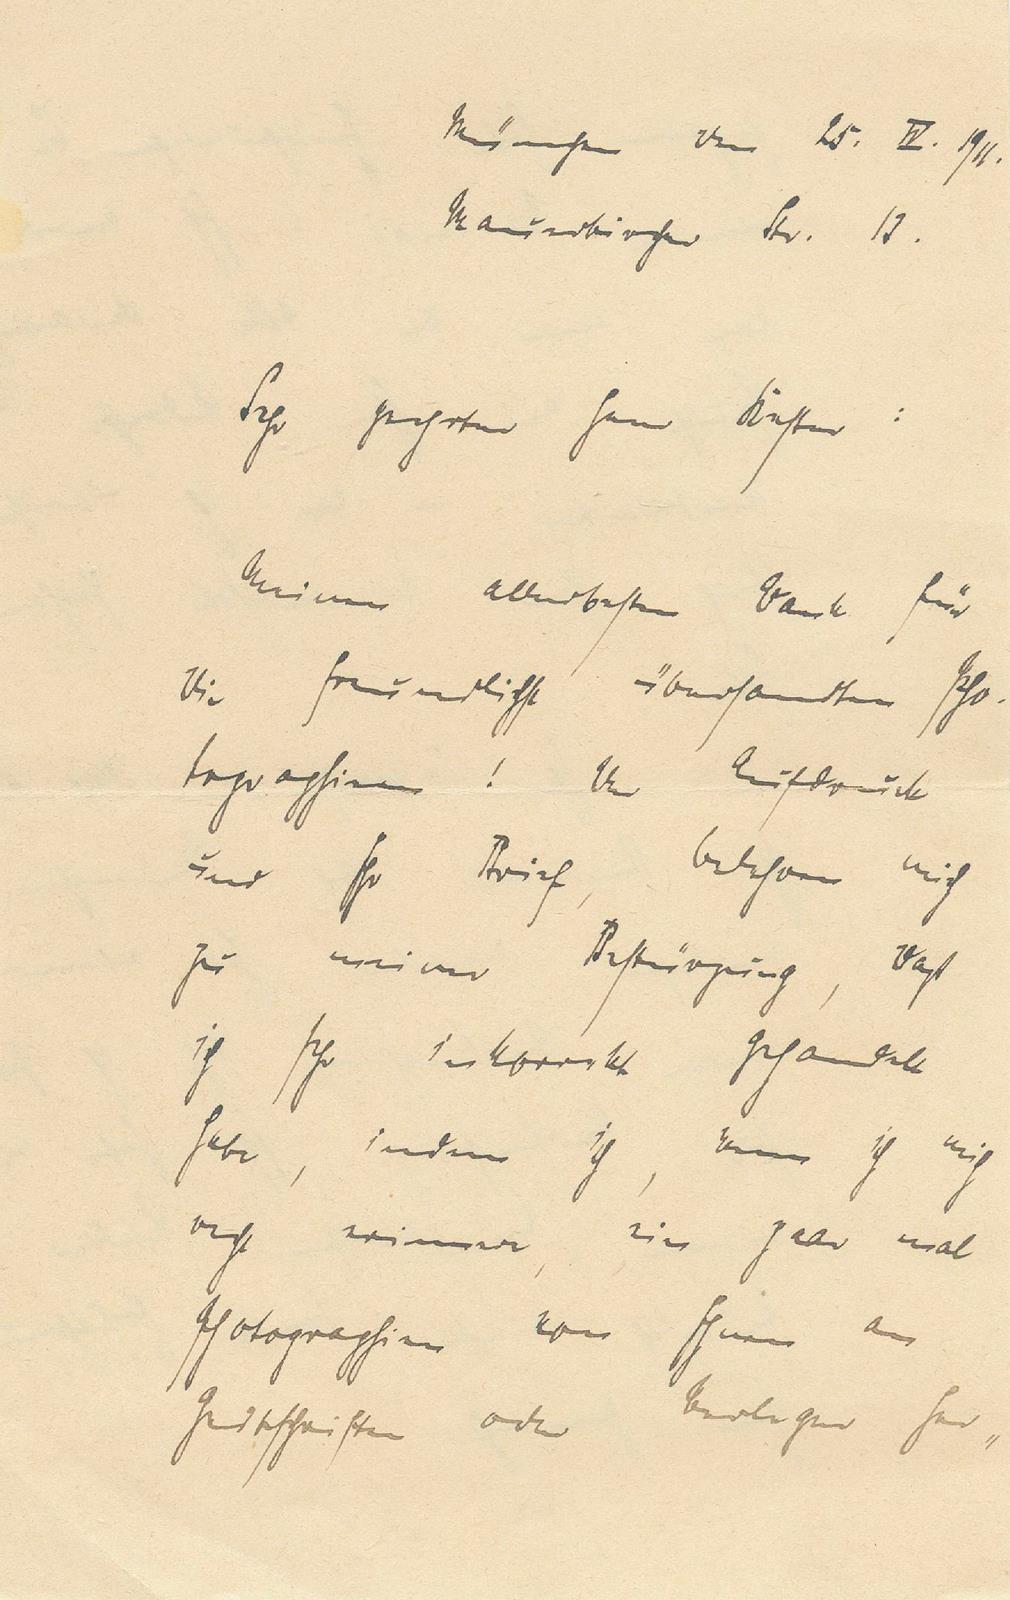 München den 25. IV. 1911.
Mauerkircher Str. 12.
Sehr geehrter Herr
Meinen allerbesten Dank für
die freundlichst übersandten Pho-
tographieen! Der Aufdruck
und Ihr Brief, belehren mich
zu meiner Bestürzung, daß
ich sehr inkorrekt gehandelt
habe, indem ich, wenn ich mich
recht erinnere, ein paar mal
Photographien von Ihnen an
Zeitschriften oder Verleger her„